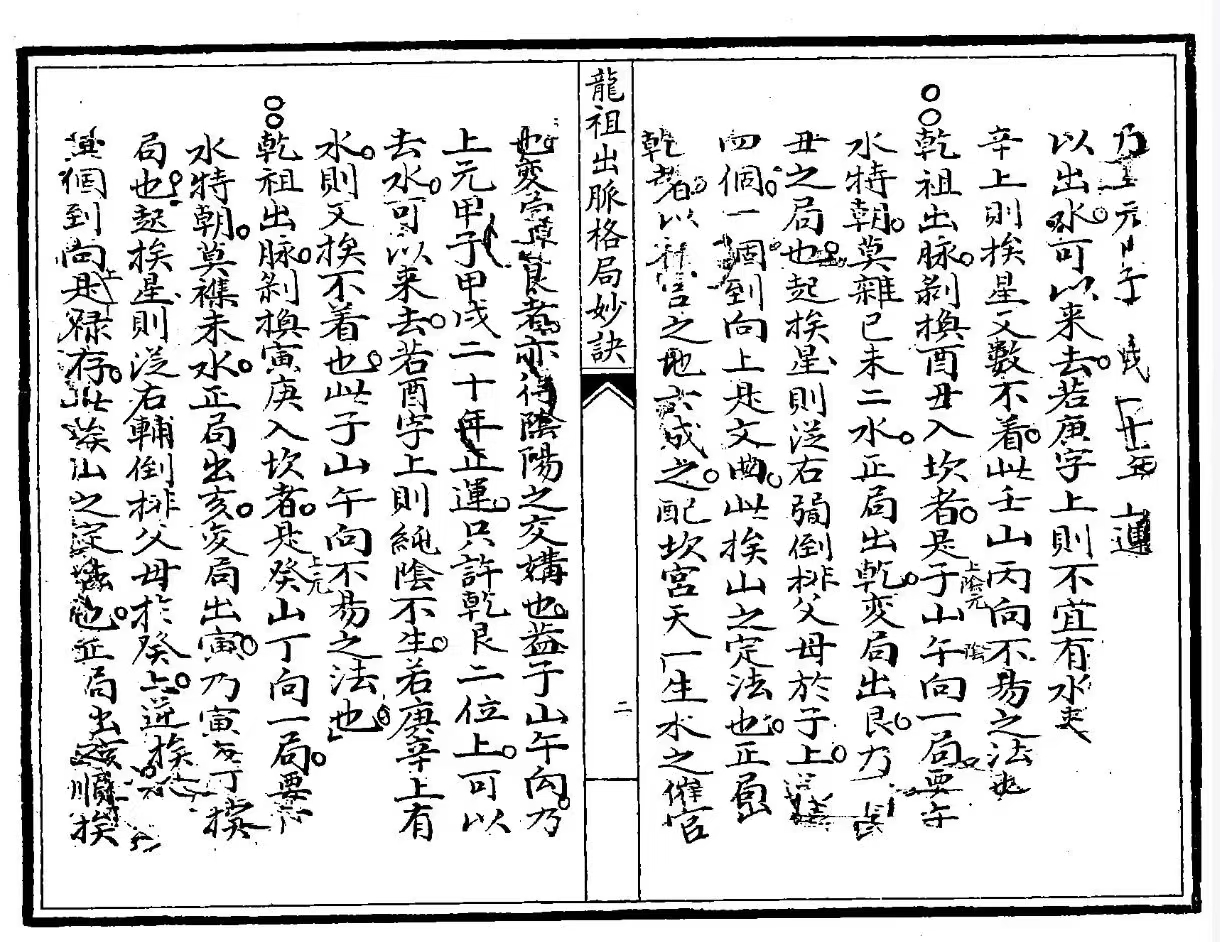 乃上元甲子 戌 二十年 正運
以出水可以来去若庚字上則不宜有水夾
辛上則挨星又數不着此壬山丙向不易之法
乾祖出脉剝換酉丑入坎者是子山午向一局要午
上元
陰
陰
水特朝莫雜巳未二水正局出乾变局出艮乃
丑之局也起挨星則從右弼倒排父母於子上
四個一個到向上是文曲此挨山之定法也正局出
乾者以 宫之地六成之配坎宫天一生水之催官
龍祖出脈格局妙訣
二
也变 艮者亦得陰陽之交媾也益子山午向乃
上元甲子甲戌二十年正運只許乾艮二位上可以
去水可以来去若酉字上則純陰不生若庚辛上有
水則又挨不着也此子山午向不易之法也
乾祖出脉剝換寅庚入坎者是癸山丁向一局要
上元
水特朝莫襍未水正局出亥变局出寅乃寅 丁
局也起挨星則從右輔倒排父母於癸上逆挨
個到向是禄存此挨山之定法也正局出亥順挨